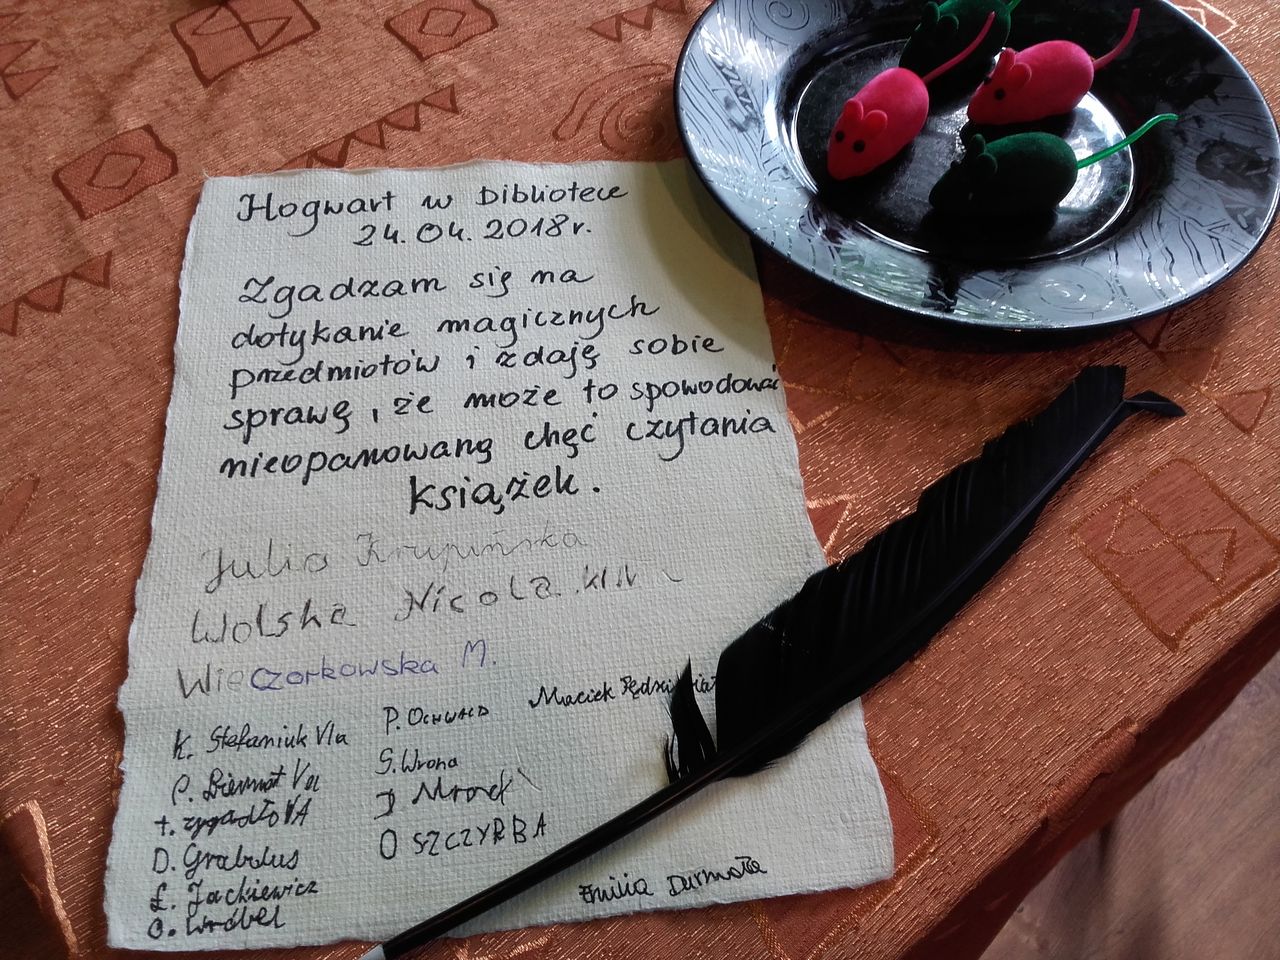 Hogwart w Bibliotece
24.04.2018r.
Zgadzam się na
dotykanie magicznych
przedmiotów i zdaję sobie
sprawę, że może to spowodować
nieopanowaną chęć czytania
książek.
Julia Krupińska
Wolska Nicola
Wieczorkowska M.
Maciek
K. Stefaniuk VIa
P. Ochwald
S. Wrona
P. Biernat
J Mrozek
D. Grabulus
O SZCZYRBA
Ł. Jackiewicz
O. Wróbel
Emilia Durmała